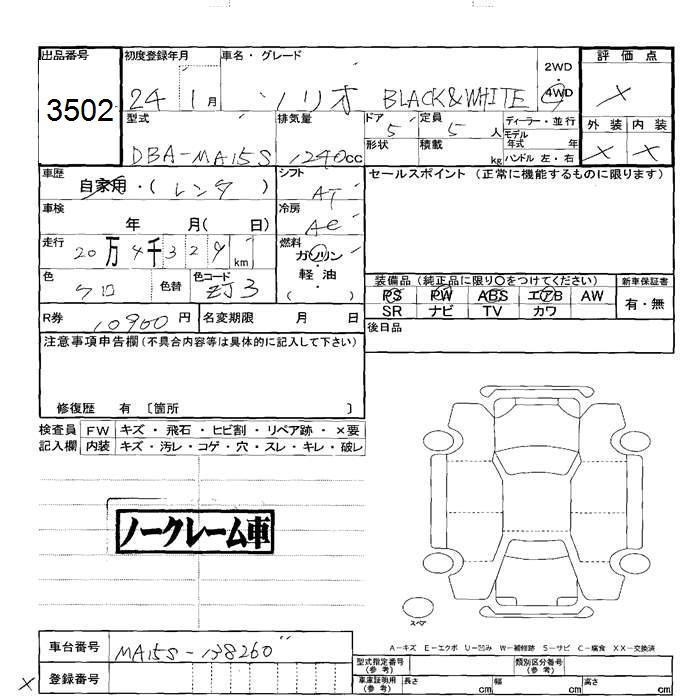 出品番号 初度登録年月 車名・グレード 2WD ・ 4WD 評価点
3502 24 1月 ソリオ BLACK&WHITE ×
型式 排気量 ドア 定員 ディーラー・並行 外装 内装
DBA-MA15S 1240cc 5 5人 モデル年式 年 × ×
形状 積載 kg ハンドル 左・右
車歴 自家用・(レンタ) シフト AT セールスポイント (正常に機能するものに限ります)
車検 年 月( 日) 冷房 AC
走行 20万4千329km 燃料 ガソリン・軽油 ( )
色 クロ 色替 色コード ZJ3 装備品 (純正品に限り〇をつけてください) 新車保証書
PS PW ABS エアB AW 有・無
SR ナビ TV カワ
R券 10900円 名変期限 月 日 後日品
注意事項申告欄 (不具合内容等は具体的に記入して下さい)
修復歴 有 〔箇所 〕
検査員 FW キズ・飛石・ヒビ割・リペア跡・×要
記入欄 内装 キズ・汚レ・コゲ・穴・スレ・キレ・破レ
ノークレーム車
スペア
A-キズ E-エクボ U-凹み W-補修跡 S-サビ C-腐食 XX-交換済
車台番号 MA15S-138260
型式指定番号 (参考) 類別区分番号 (参考)
× 登録番号
車庫証明用 (参考) 長さ cm 幅 cm 高さ cm